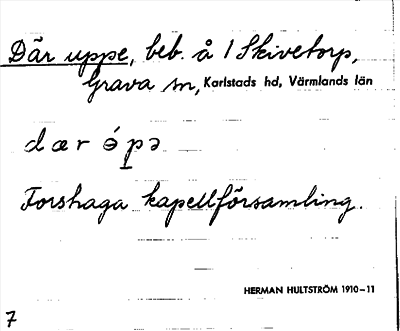 Där uppe, beb. å 1 Skivetorp,
Grava sn, Karlstads hd, Värmlands län
dær ǿpə
Forshaga kapellförsamling.
HERMAN HULTSTRÖM 1910–11
7